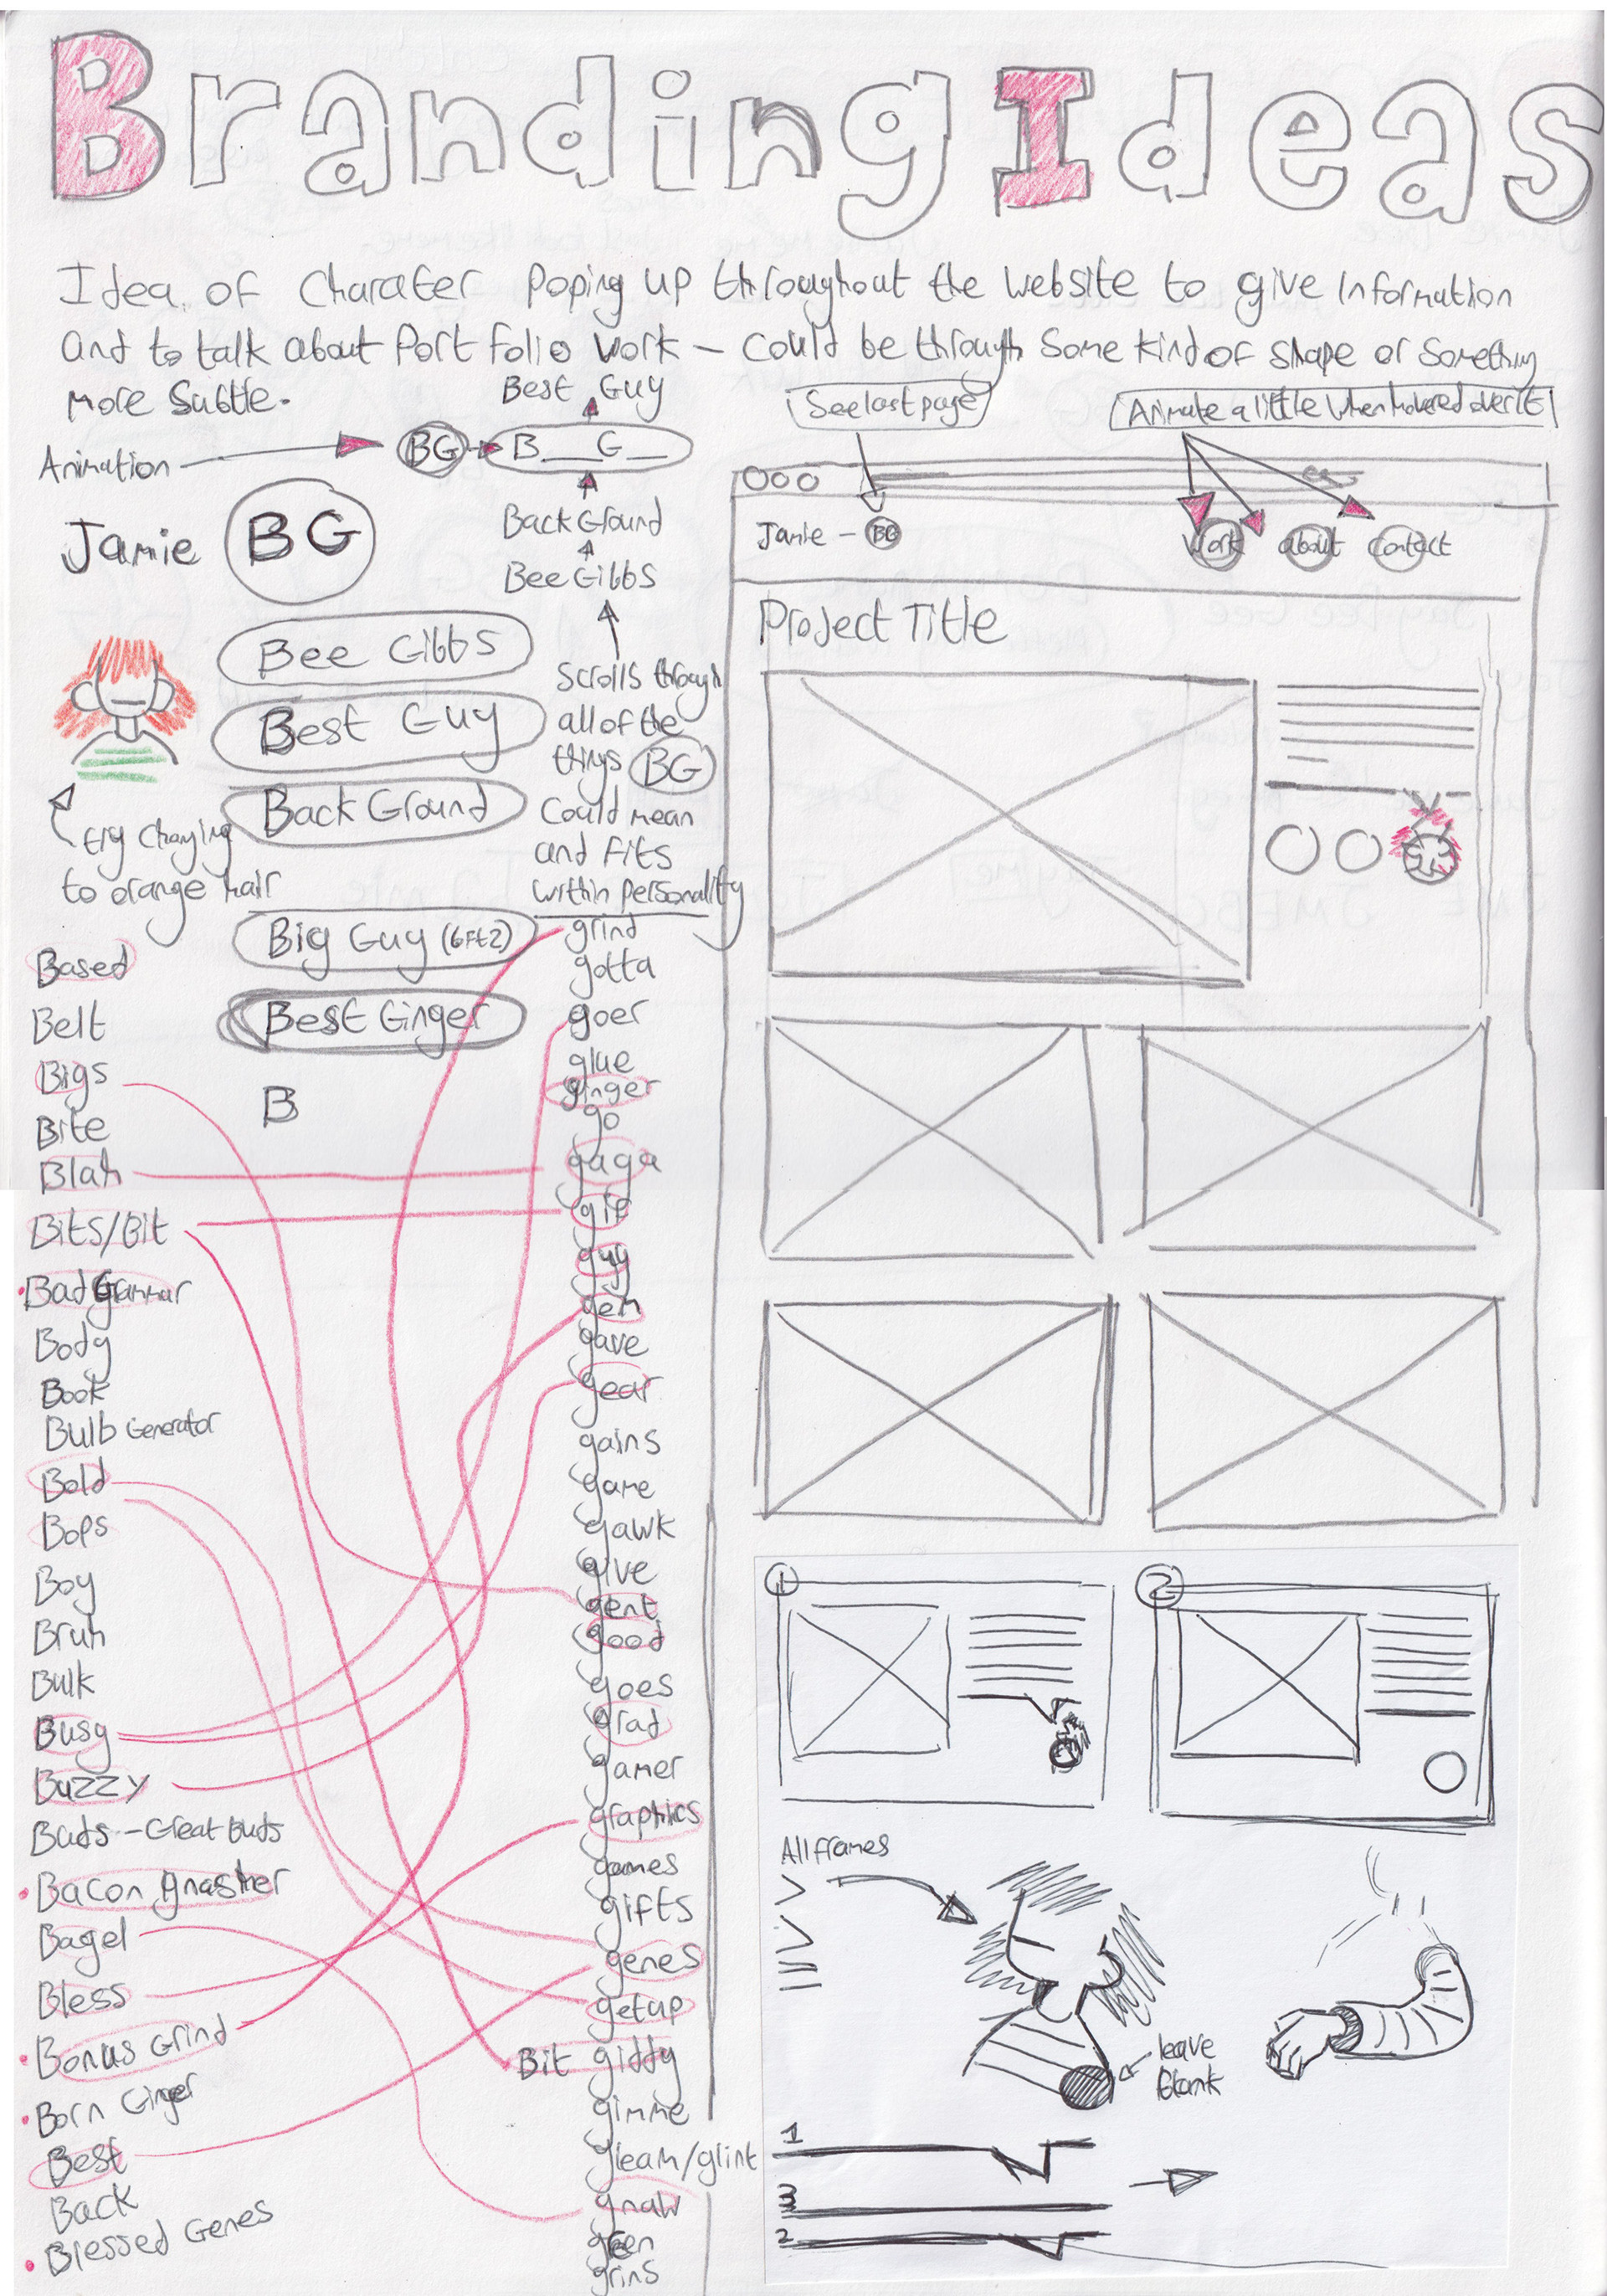 Branding Ideas
Idea of Charater Poping up throughout the website to give Information
And to talk about Portfolio work – could be through some kind of shape or something
more subtle.
Best Guy
See last page
Animate a little when hovered over it
Animation
BG
B___G__
Jamie
BG
Back Ground
Bee Gibbs
Jamie – BG
Work
about
Contact
Project Title
Bee Gibbs
Best Guy
Back Ground
Big Guy (6ft2)
Best Ginger
B
Scrolls through
all of the
things BG
Could mean
and fits
within personality
try changing
to orange hair
Based
Belt
Bigs
Bite
Blah
Bits/Bit
Bad Grammar
Body
Book
Bulb Generator
Bold
Bops
Boy
Bruh
Bulk
Busy
Buzzy
Buds – Great buds
Bacon gnasher
Bagel
Bless
Bonus Grind
Born Ginger
Best
Back
Blessed Genes
grind
gotta
goer
glue
ginger
go
gaga
gif
guy
gen
gave
gear
gains
game
gawk
give
gent
good
goes
grad
gamer
graphics
games
gifts
genes
getup
Bit giddy
gimme
gleam/glint
gnaw
grins
1
2
All frames
leave
blank
1
3
2